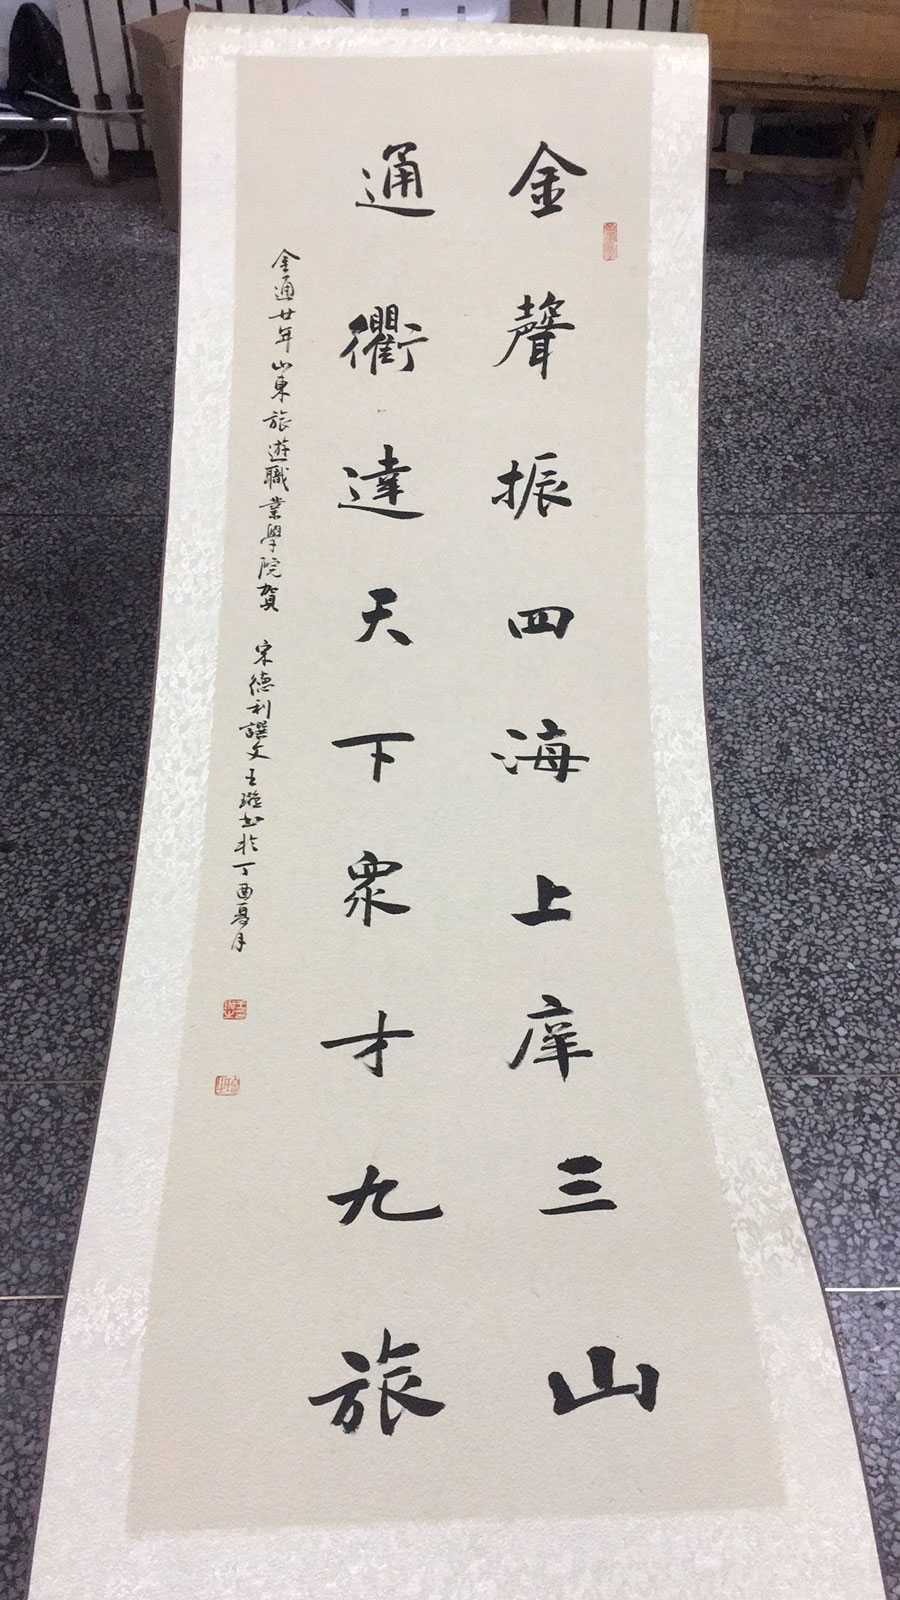 金聲振四海上庠三山
通衢達天下衆才九旅
金通廿年山東旅遊職業學院賀 宋德利譔文王璇书於丁酉夏月